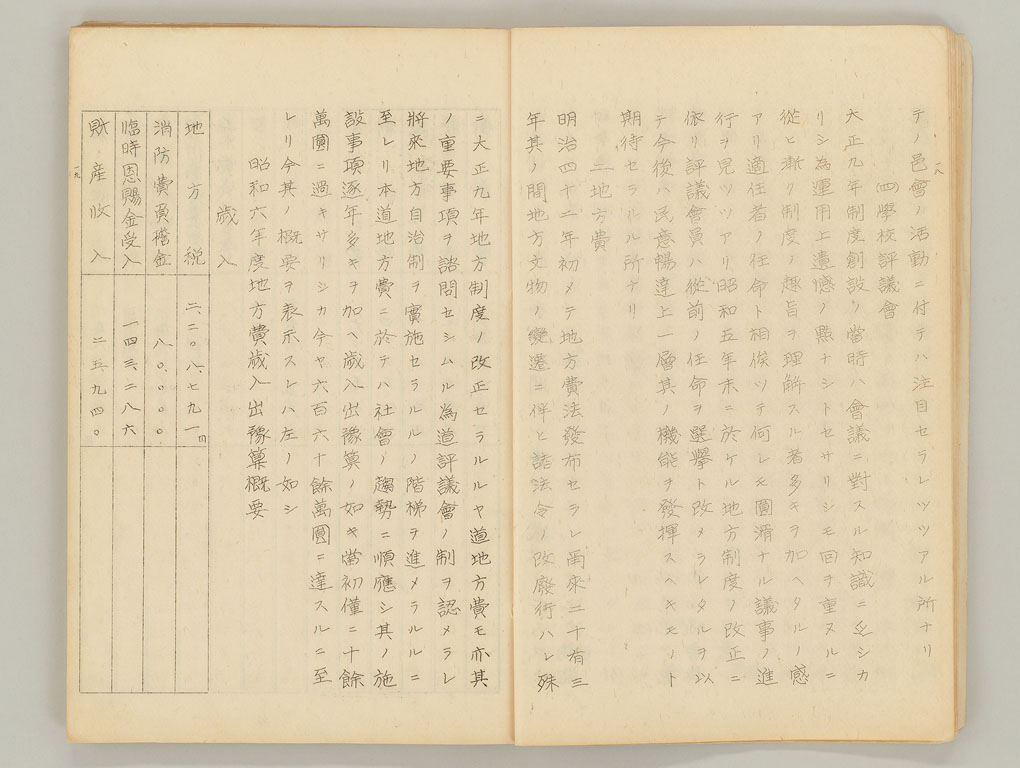 一八
テノ邑會ノ活動ニ付テハ注目セラレツツアル所ナリ
(四)學校評議會
大正九年制度創設ノ當時ハ會議ニ對スル知識ニ乏シカ
リシ為運用上遺憾ノ點ナシトセサリシモ回ヲ重ヌルニ
從ヒ漸ク制度ノ趣旨ヲ理解スル者多キヲ加ヘタルノ感
アリ適任者ノ任命ト相俟ツテ何レモ圓滑ナル議事ノ進
行ヲ見ツツアリ昭和五年末ニ於ケル地方制度ノ改正ニ
依リ評議會員ハ從前ノ任命ヲ選擧ト改メラレタルヲ以
テ今後ハ民意暢達上一層其ノ機能ヲ發揮スヘキモノト
期待セラルル所ナリ
二地方費
明治四十二年初メテ地方費法發布セラレ爾來二十有三
年其ノ間地方文物ノ變遷ニ伴ヒ諸法令ノ改廢行ハレ殊
ニ大正九年地方制度ノ改正セラルルヤ道地方費モ亦其
ノ重要事項ヲ諮問セシムル為道評議會ノ制ヲ認メラレ
將來地方自治制ヲ實施セラルルノ階梯ヲ進メラルルニ
至レリ本道地方費ニ於テハ社會ノ趨勢ニ順應シ其ノ施
設事項逐年多キヲ加ヘ歳入出豫算ノ如キ當初僅ニ十餘
萬圓ニ過キサリシカ今ヤ六百六十餘萬圓ニ達スルニ至
レリ今其ノ概要ヲ表示スレハ左ノ如シ
昭和六年度地方費歳入出豫算概要
歳入
地方税 二、二〇八、七九一円
消防費負擔金 八〇、〇〇〇
臨時恩賜金受入 一四三、二八六
財産收入 二五、九四〇
一九